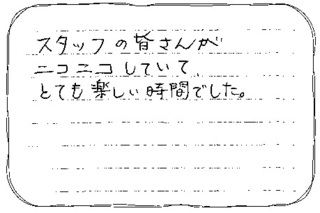 スタッフの皆さんが
ニコニコしていて、
とても楽しい時間でした。